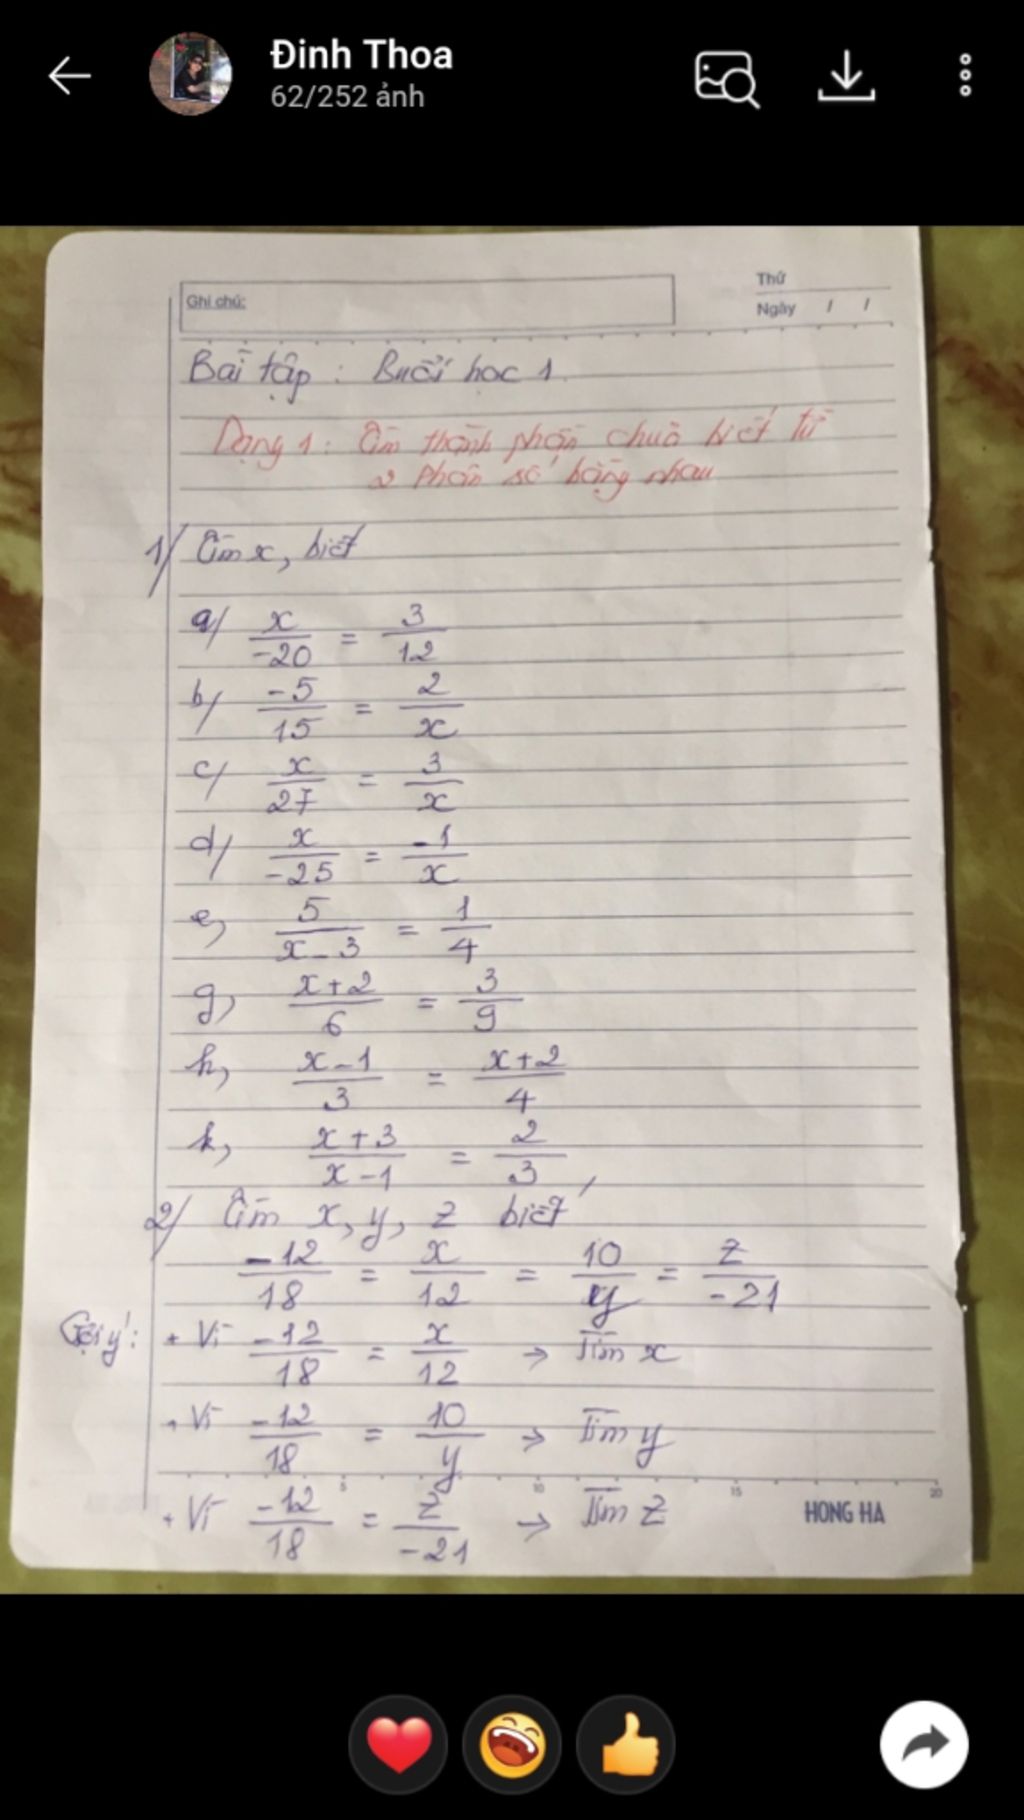 Đinh Thoa
62/252 ảnh
Ghi chú:
Thứ
Ngày / /
Bài tập : Buổi học 1.
Dạng 1: Tìm thành phần chưa biết từ
2 phân số bằng nhau
1/ Tìm x, biết
a/ x/-20 = 3/12
b/ -5/15 = 2/x
c/ x/27 = 3/x
d/ x/-25 = -1/x
e, 5/x-3 = 1/4
g, x+2/6 = 3/9
h, x-1/3 = x+2/4
k, x+3/x-1 = 2/3
2/ Tìm x, y, z biết
-12/18 = x/12 = 10/y = z/-21
Gợi ý: + Vì -12/18 = x/12 → Tìm x
+ Vì -12/18 = 10/y → Tìm y
+ Vì -12/18 = z/-21 → Tìm z
5 10 15 20
HONG HA